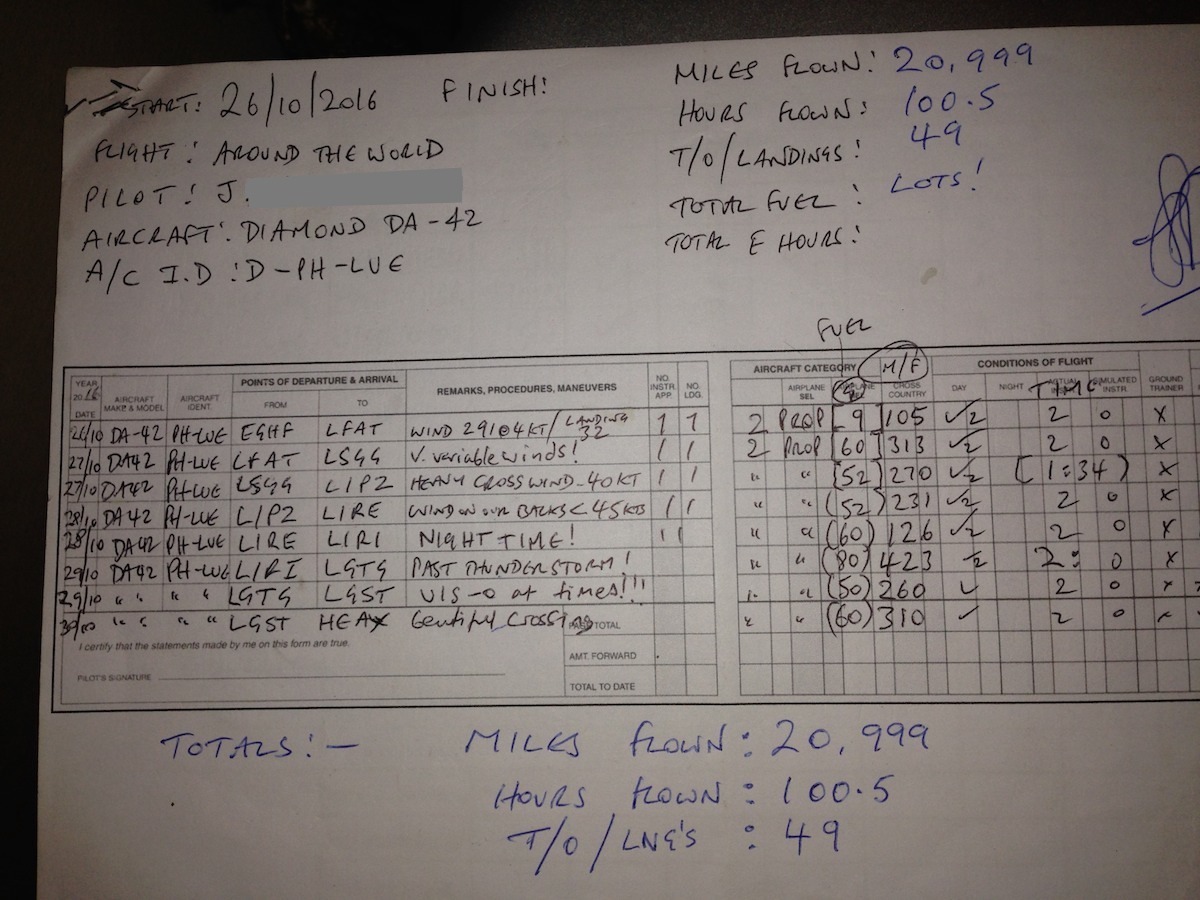 START: 26/10/2016 FINISH:
FLIGHT: AROUND THE WORLD
PILOT: J.
AIRCRAFT: DIAMOND DA-42
A/C I.D: D-PH-LUE
MILES FLOWN: 20,999
HOURS FLOWN: 100.5
T/O/LANDINGS: 49
TOTAL FUEL: LOTS!
TOTAL E HOURS:
FUEL
YEAR 2016 DATE AIRCRAFT MAKE & MODEL AIRCRAFT IDENT. POINTS OF DEPARTURE & ARRIVAL FROM TO REMARKS, PROCEDURES, MANEUVERS NO. INSTR. APP. NO. LDG. AIRCRAFT CATEGORY AIRPLANE SEL M/F CROSS COUNTRY CONDITIONS OF FLIGHT DAY NIGHT SIMULATED INSTR. GROUND TRAINER
26/10 DA-42 PH-LUE EGHF LFAT WIND 291@4KT/ LANDING 32 1 1 2 PROP [9] 105 ✓2 2 0 X
27/10 DA42 PH-LUE LFAT LSGG V. variable winds! 1 1 2 PROP [60] 313 ✓2 2 0 X
27/10 DA42 PH-LUE LSGG LIPZ HEAVY CROSSWIND-40KT 1 1 " " [52] 270 ✓2 (1:34) X
28/10 DA42 PH-LUE LIPZ LIRE WIND ON OUR BACKS < 45KTS 1 1 " " (52) 231 ✓2 2 0 X
28/10 DA42 PH-LUE LIRE LIRI NIGHT TIME! 1 1 " " (60) 126 ✓2 2 0 X
29/10 DA42 PH-LUE LIRI LGTG PAST THUNDERSTORM! " " (80) 423 2 2: 0 X
29/10 " " " " LGTG LGST VIS-0 at times!!! " " (50) 260 ✓ 2 0 X
30/10 " " " " LGST HEAX Beautiful Crossing " " (60) 310 ✓ 2 0 X
I certify that the statements made by me on this form are true.
PAGE TOTAL
AMT. FORWARD
PILOT'S SIGNATURE
TOTAL TO DATE
TOTALS:- MILES FLOWN: 20,999
HOURS FLOWN: 100.5
T/O/LNG'S : 49